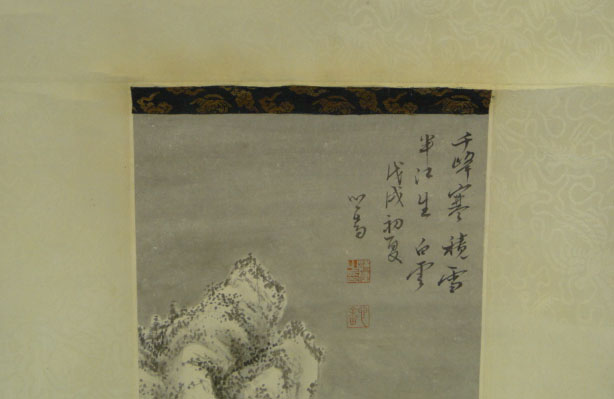 千峰寒積雪
半江生白雲
戊戌初夏
心畬